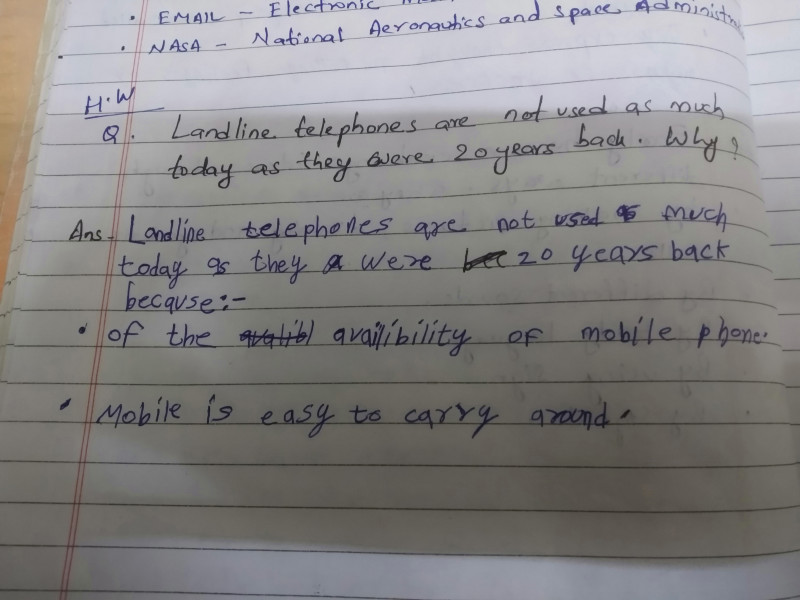 • EMAIL - Electronic
• NASA - National Aeronautics and space Administr
H.W
Q. Landline telephones are not used as much
today as they were 20 years back. Why?
Ans - Landline telephones are not used as much
today as they were 20 years back
because:-
• of the availibility of mobile phone.
• Mobile is easy to carry around.